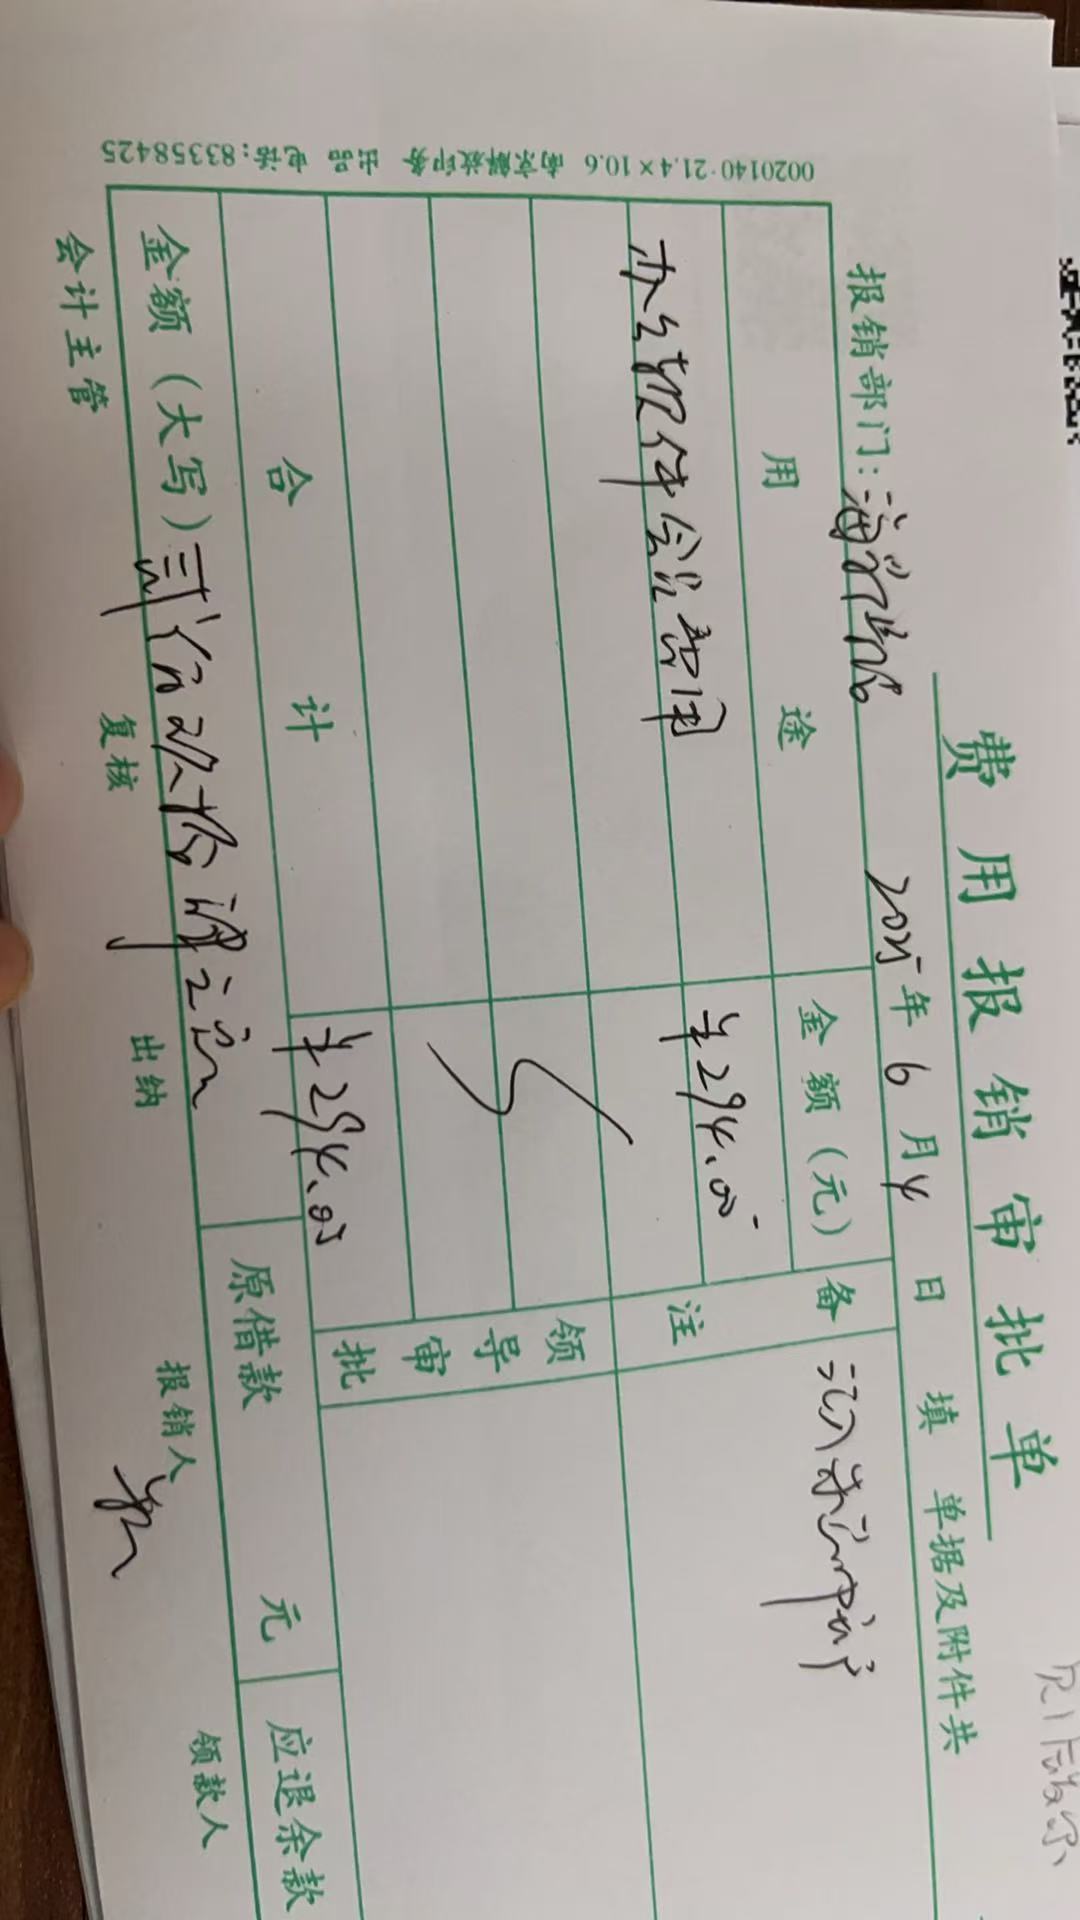 费用报销审批单
报销部门：
2025年6月4日 填 单据及附件共
用途 金额（元） 备注
办公 软件 会员费用 ¥294.00
领导审批
合计 ¥294.00
金额（大写）贰佰玖拾肆元 原借款 元 应退余款
会计主管 复核 出纳 报销人 领款人
0020140·21.4×10.6 南京解放印务 出品 电话：83358425